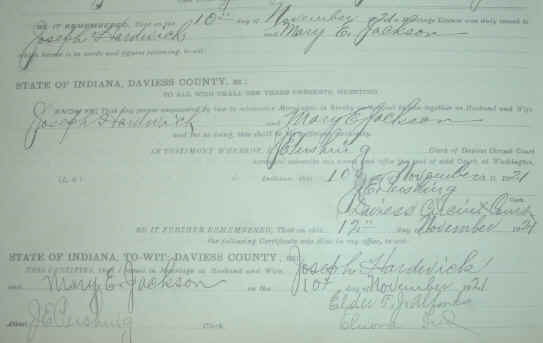 BE IT REMEMBERED, That on this 10th day of November 1921 Marriage License was duly issued to
Joseph Hardwick and Mary E. Jackson
which license is in words and figures following, to-wit:
STATE OF INDIANA, DAVIESS COUNTY, ss:
TO ALL WHO SHALL SEE THESE PRESENTS, GREETING:
KNOW YE: That any person empowered by law to solemnize Marriages is hereby authorized to join together as Husband and Wife
Joseph Hardwick and Mary E Jackson
and for so doing, this shall be sufficient authority.
IN TESTIMONY WHEREOF, I, J E Pershing Clerk of Daviess Circuit Court
hereunto subscribe my name and affix the seal of said Court at Washington,
(L. S.) Indiana, this 10th November 1921
J E Pershing
Clerk
Daviess Circuit Court
BE IT FURTHER REMEMBERED, That on this 12th day of November 1921
the following Certificate was filed in my office, to-wit:
STATE OF INDIANA, TO-WIT: DAVIESS COUNTY, ss:
THIS CERTIFIES, That I joined in Marriage as Husband and Wife, Joseph Hardwick
and Mary E. Jackson on the 10th day November 1921
Elder T. J.
Attest J E Pershing Clerk Elnora Ind